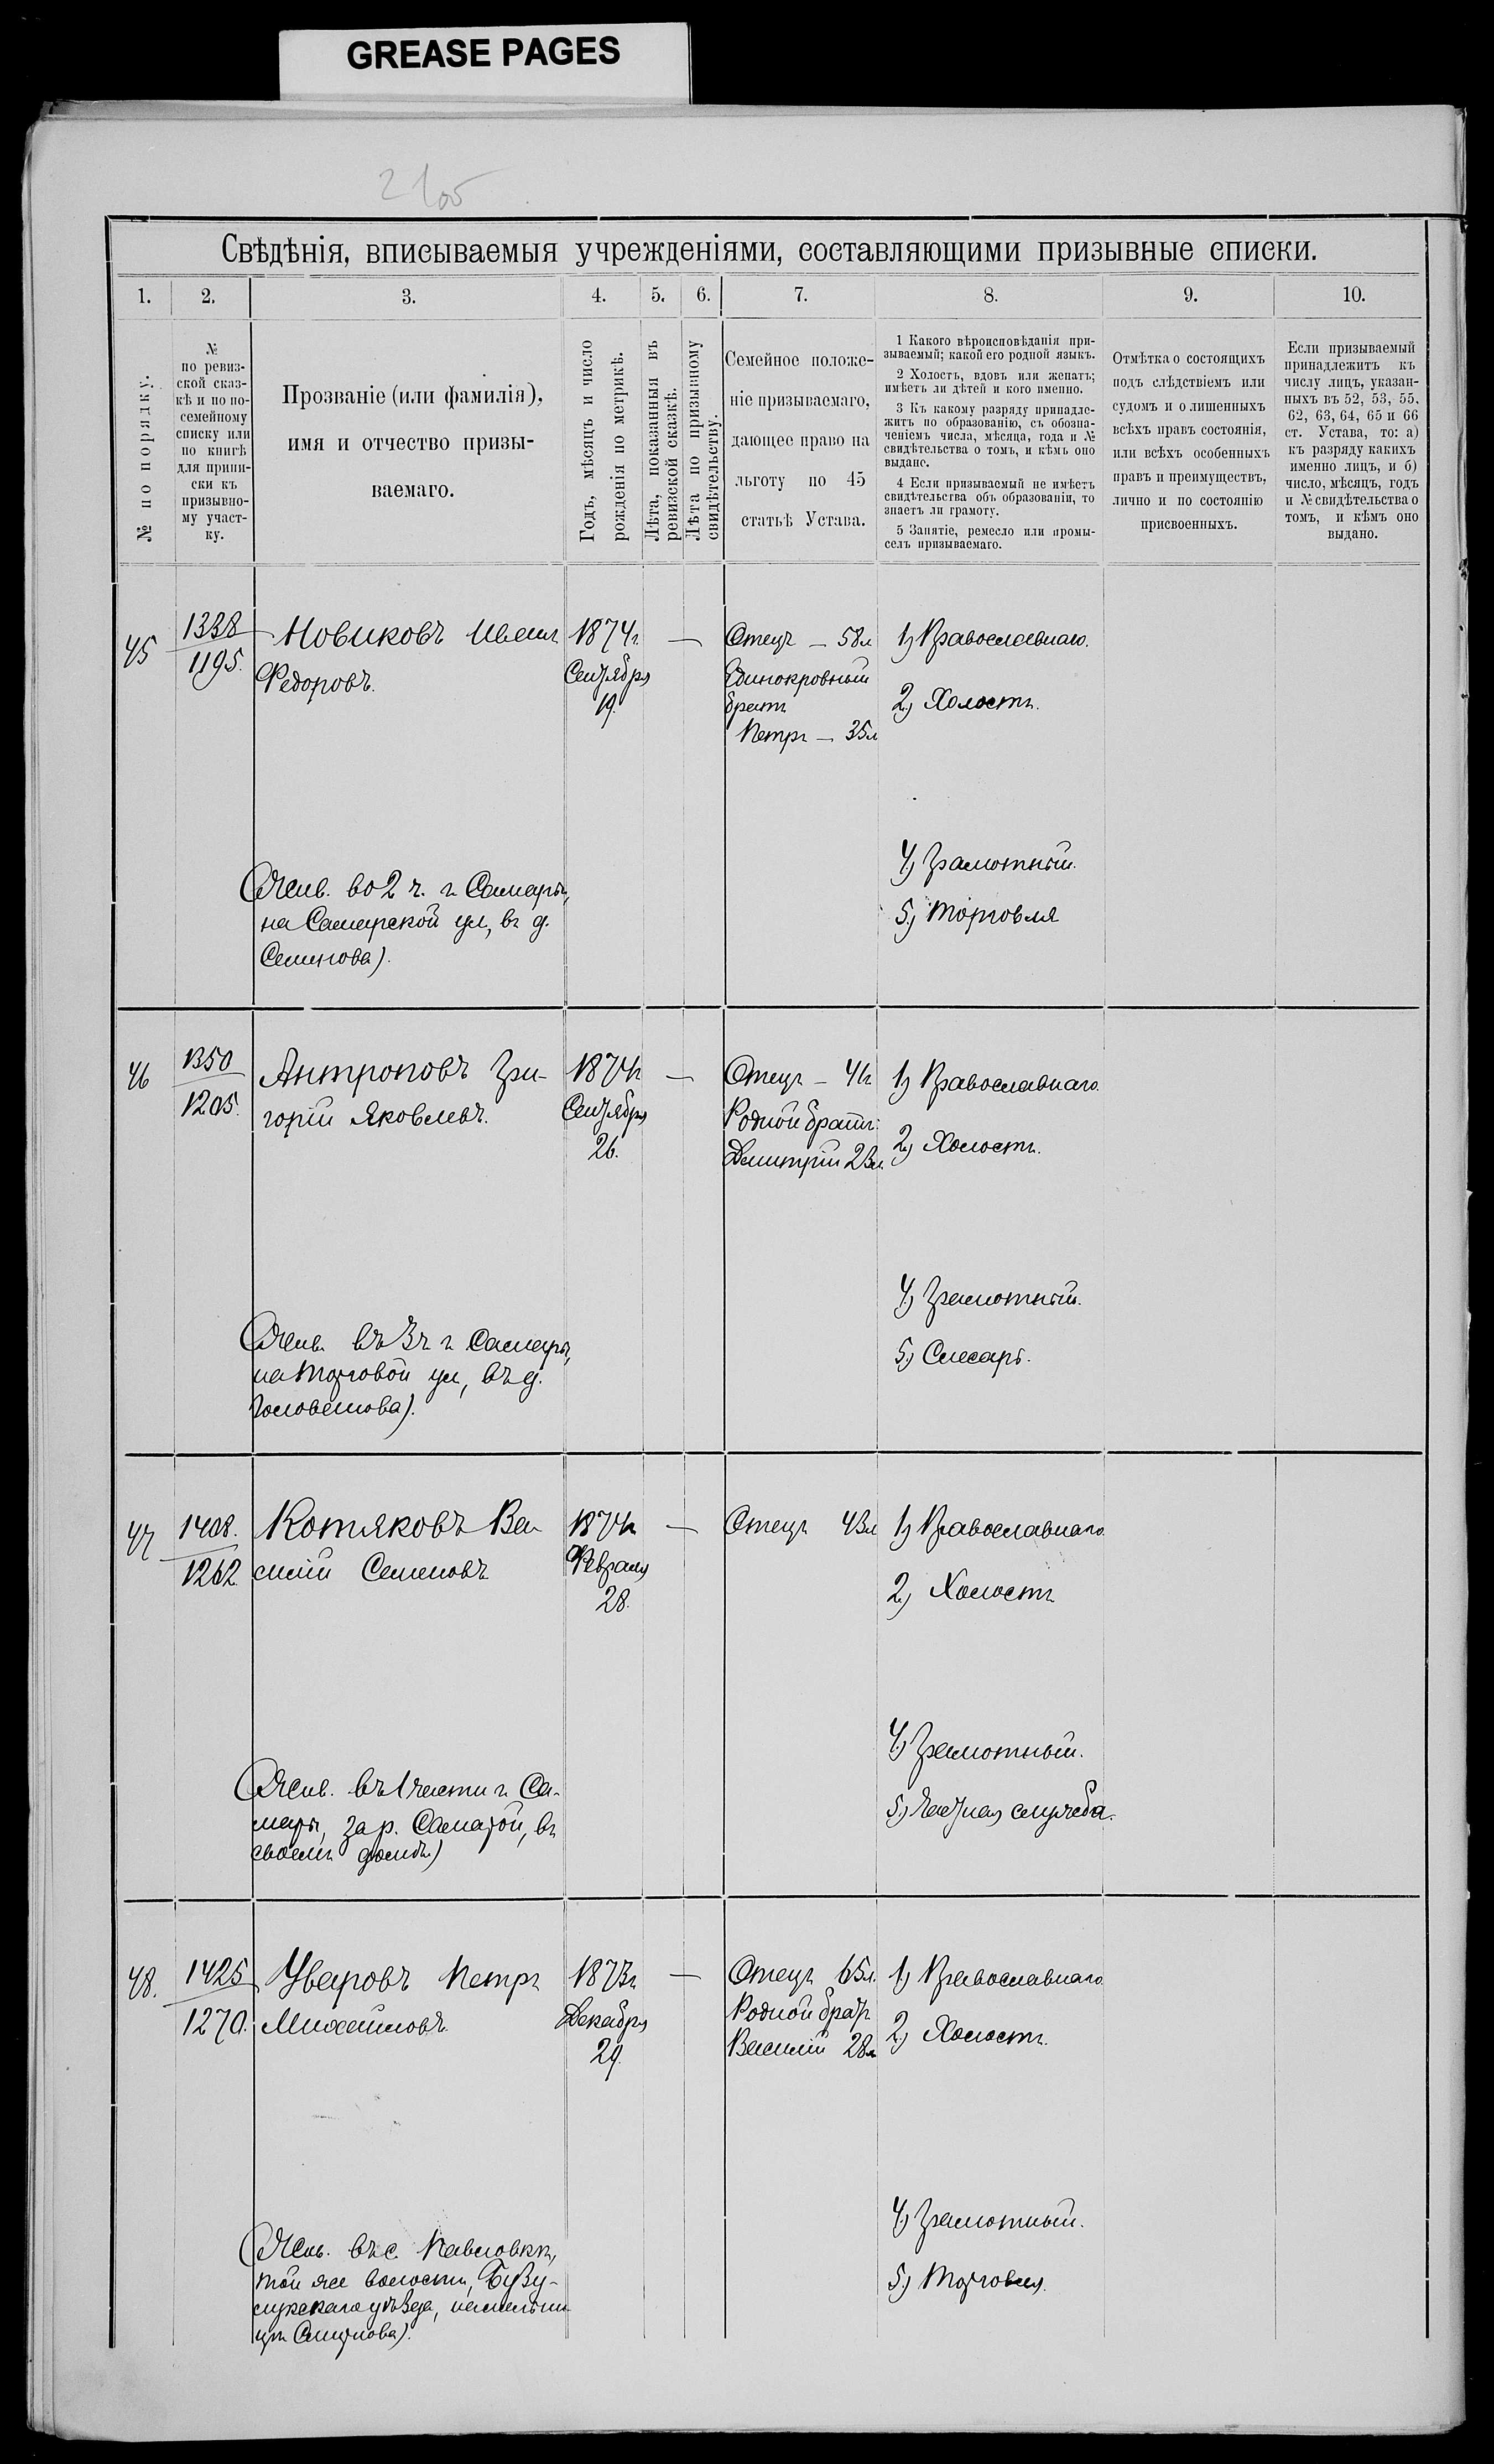 GREASE PAGES
2105
Свѣдѣнія, вписываемыя учрежденіями, составляющими призывные списки.
1. 2. 3. 4. 5. 6. 7. 8. 9. 10.
№ по порядку.
№
по ревиз-
ской сказ-
кѣ и по по-
семейному
списку или
по книгѣ
для припи-
ски къ
призывно-
му участ-
ку.
Прозваніе (или фамилія),
имя и отчество призы-
ваемаго.
Годъ, мѣсяцъ и число
рожденія по метрикѣ.
Лѣта, показанныя въ
ревизской сказкѣ.
Лѣта по призывному
свидѣтельству.
Семейное положе-
ніе призываемаго,
дающее право на
льготу по 45
статьѣ Устава.
1 Какого вѣроисповѣданія при-
зываемый; какой его родной языкъ.
2 Холостъ, вдовъ или женатъ;
имѣетъ ли дѣтей и кого именно.
3 Къ какому разряду принадле-
житъ по образованію, съ обозна-
ченіемъ числа, мѣсяца, года и №
свидѣтельства о томъ, и кѣмъ оно
выдано.
4 Если призываемый не имѣетъ
свидѣтельства объ образованіи, то
знаетъ ли грамоту.
5 Занятіе, ремесло или промы-
селъ призываемаго.
Отмѣтка о состоящихъ
подъ слѣдствіемъ или
судомъ и о лишенныхъ
всѣхъ правъ состоянія,
или всѣхъ особенныхъ
правъ и преимуществъ,
лично и по состоянію
присвоенныхъ.
Если призываемый
принадлежитъ къ
числу лицъ, указан-
ныхъ въ 52, 53, 55,
62, 63, 64, 65 и 66
ст. Устава, то: а)
къ разряду какихъ
именно лицъ, и б)
число, мѣсяцъ, годъ
и № свидѣтельства о
томъ, и кѣмъ оно
выдано.
45
1338
1195.
Новиковъ Иванъ
Ѳедоровъ.
1874г.
Сентября
19.
—
Отецъ — 58л
Единокровный
братъ
Петръ — 35л
1) Православнаго.
2) Холостъ.
4) Грамотный.
5) Торговля
(Жив. во 2 ч. г. Самары,
на Самарской ул, въ д.
Семенова).
46
1350
1205.
Антроповъ Гри-
горій Яковлевъ.
1874г
Сентября
26.
—
Отецъ — 41г
Родной братъ:
Дмитрій 23л.
1) Православнаго
2) Холостъ.
4) Грамотный.
5) Слесарь.
(Жив. въ 3ч г. Самары,
на Торговой ул, въ д.
47
1408.
1262.
Котяковъ Ва-
силій Семеновъ
1874г
Февраля
28.
—
Отецъ 43л
1) Православнаго
2) Холостъ
4) Грамотный.
5) Частная служба.
(Жив. въ 1 части г. Са-
мары, за р. Самарой, въ
своемъ домѣ)
48.
1425
1270.
Уваровъ Петръ
Михайловъ.
1873г
Декабря
29.
—
Отецъ 65л.
Родной братъ
Василій 28л
1) Православнаго
2) Холостъ.
4) Грамотный.
5) Торговля.
(Жив. въ с. Павловкѣ,
той же волости, Бузу-
лукскаго уѣзда, на мельни-
цѣ Смирнова).